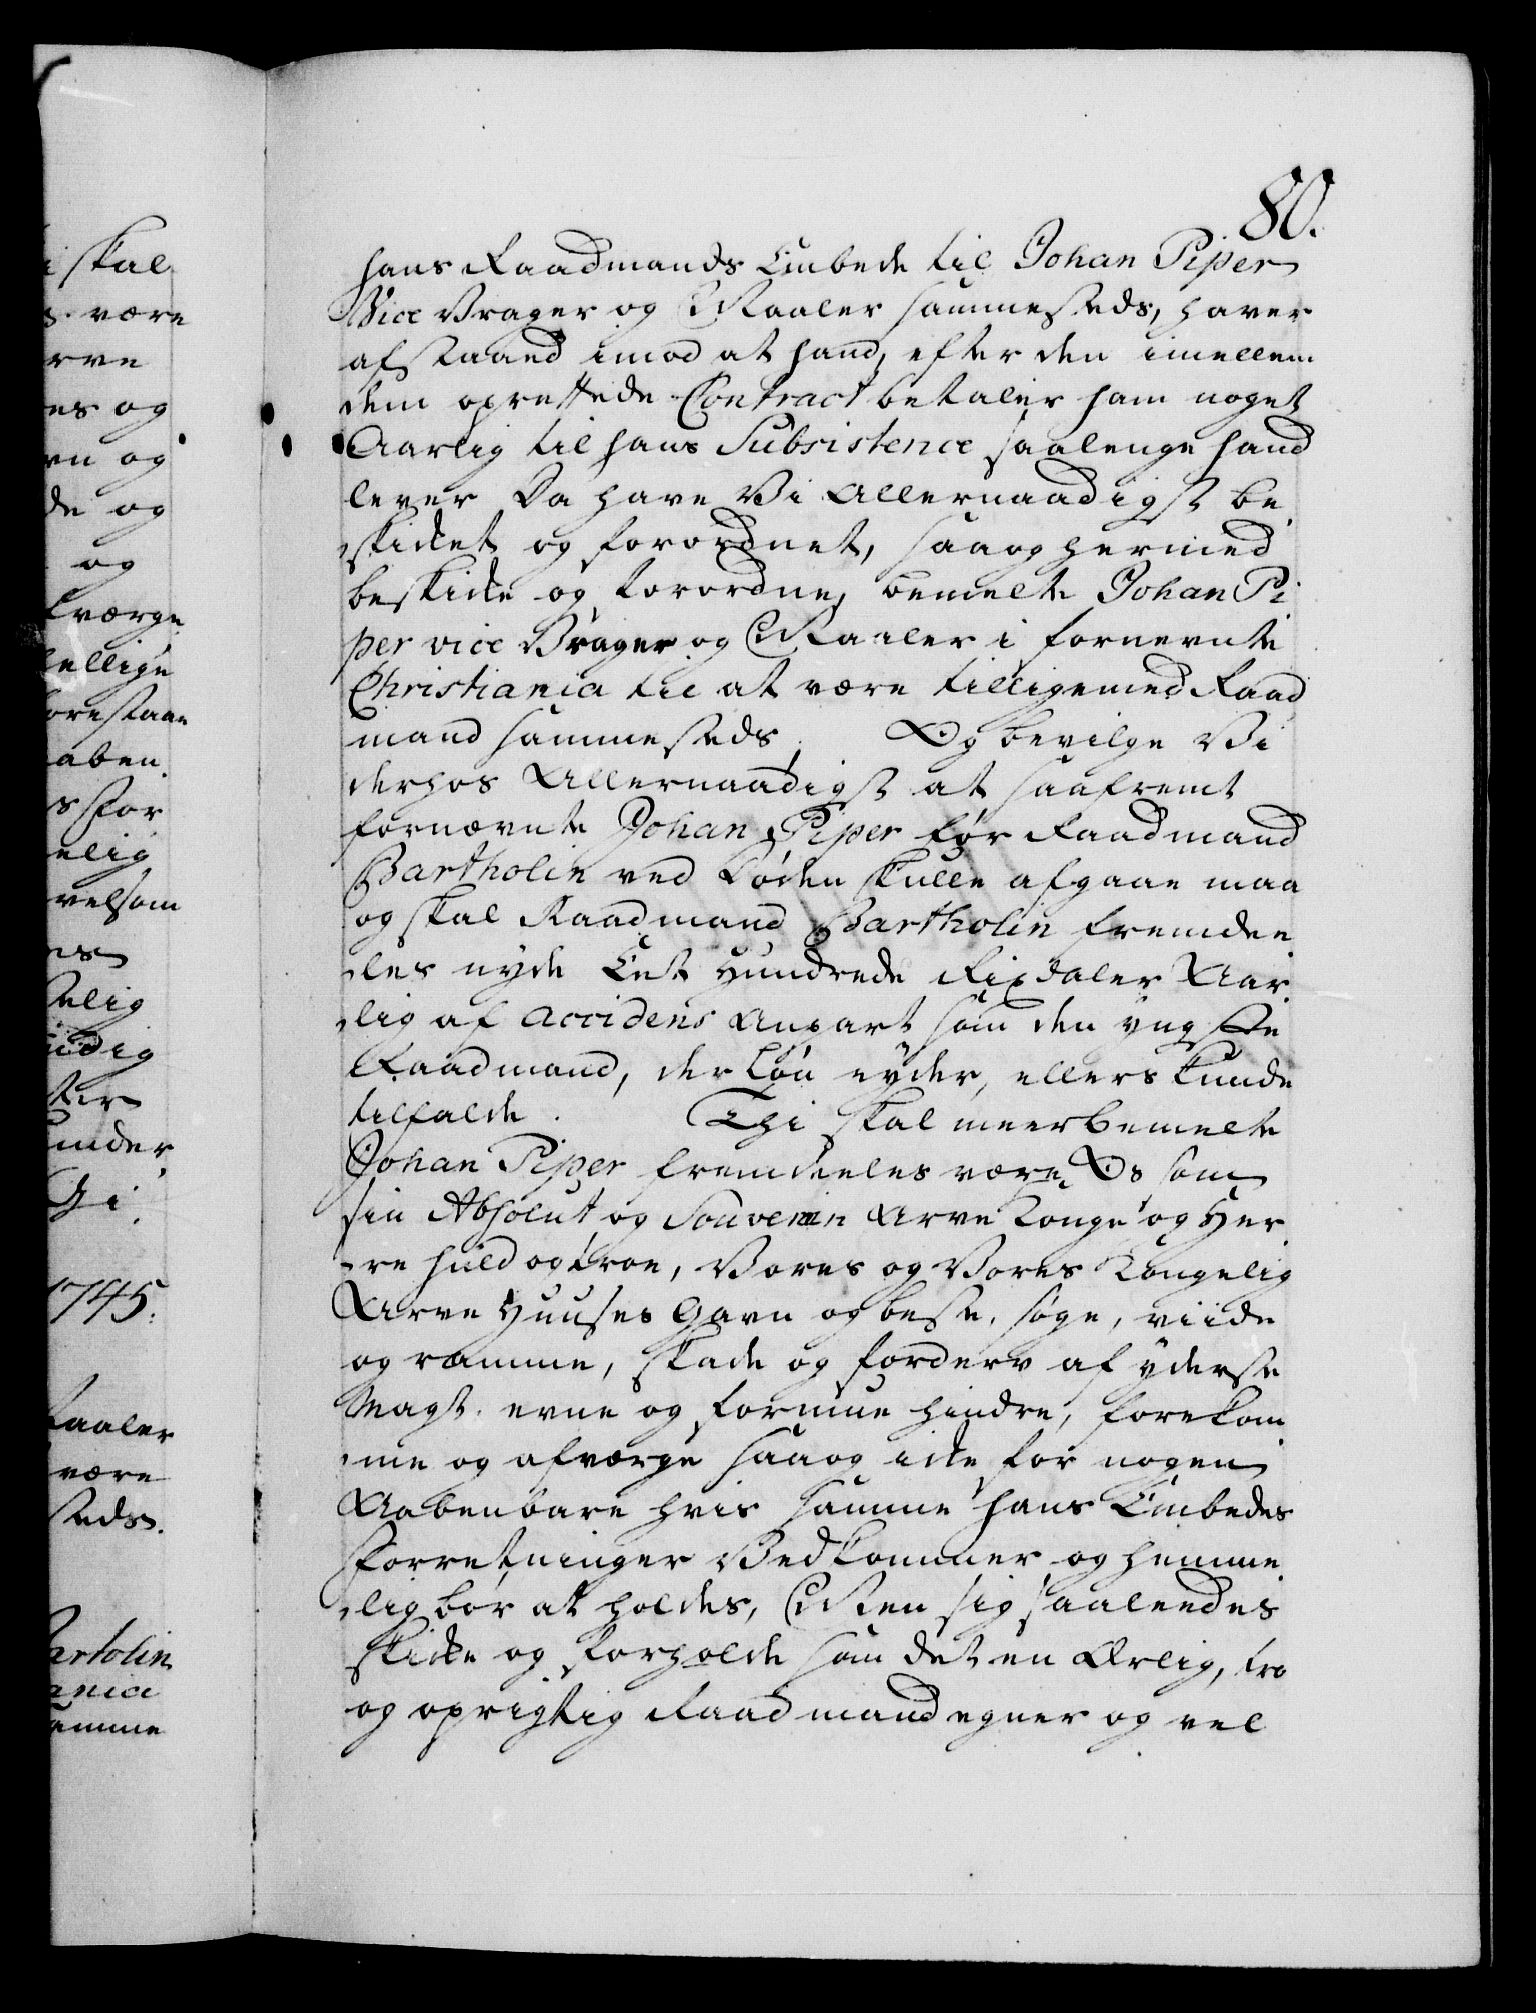 80.
hans Raadmands Embede til Johan Piper
Vice Vrager og Maaler sammesteds, haver
afstaaed imod at hand, efter den imellem
dem oprettede Contract betaler ham noget
Aarlig til hans Subsistence saalenge hand
lever Da have Vi Allernaadigst be
skikket og forordnet, saa og hermed
beskikke og forordne, bemelte Johan Pi
per vice Vrager og Maaler i fornevnte
Christiania til at være tilligemed Raad
mand sammesteds. Og bevilge Vi
derhos Allernaadigst at saafremt
fornævnte Johan Piper før Raadmand
Bartholin ved Døden skulle afgaae maa
og skal Raadmand Bartholin fremdee
les nyde Eet Hundrede Rixdaler Aar
lig af Accidens Anpart som den yngste
Raadmand, der Løn nyder, ellers kunde
tilfalde. Thi skal meerbemelte
Johan Piper fremdeeles være Os som
sin Absolut og Souverain Arve Konge og Her
re huld og troe, Vores og Vores Kongelig
Arve Huuses Gavn og beste, søge, viide
og ramme, skade og forderv af yderste
Magt, evne og formue hindre, forekom
me og afværge saa og ikke for nogen
Aabenbare hvis samme hans Embedes
Forretninger Vedkommer og hemme
lig bør at holdes, Men sig saaledes
skikke og forholde som det en Ærlig, tro
og oprigtig Raadmand egner og vel
i skal
være
rve
es og
vn og
de og
og
værge
ellige
orestaae
aben
s for
elig
velsom
es
elig
ter
under
Gi
1745.
Maaler
være
steds.
artolin
ania
amme